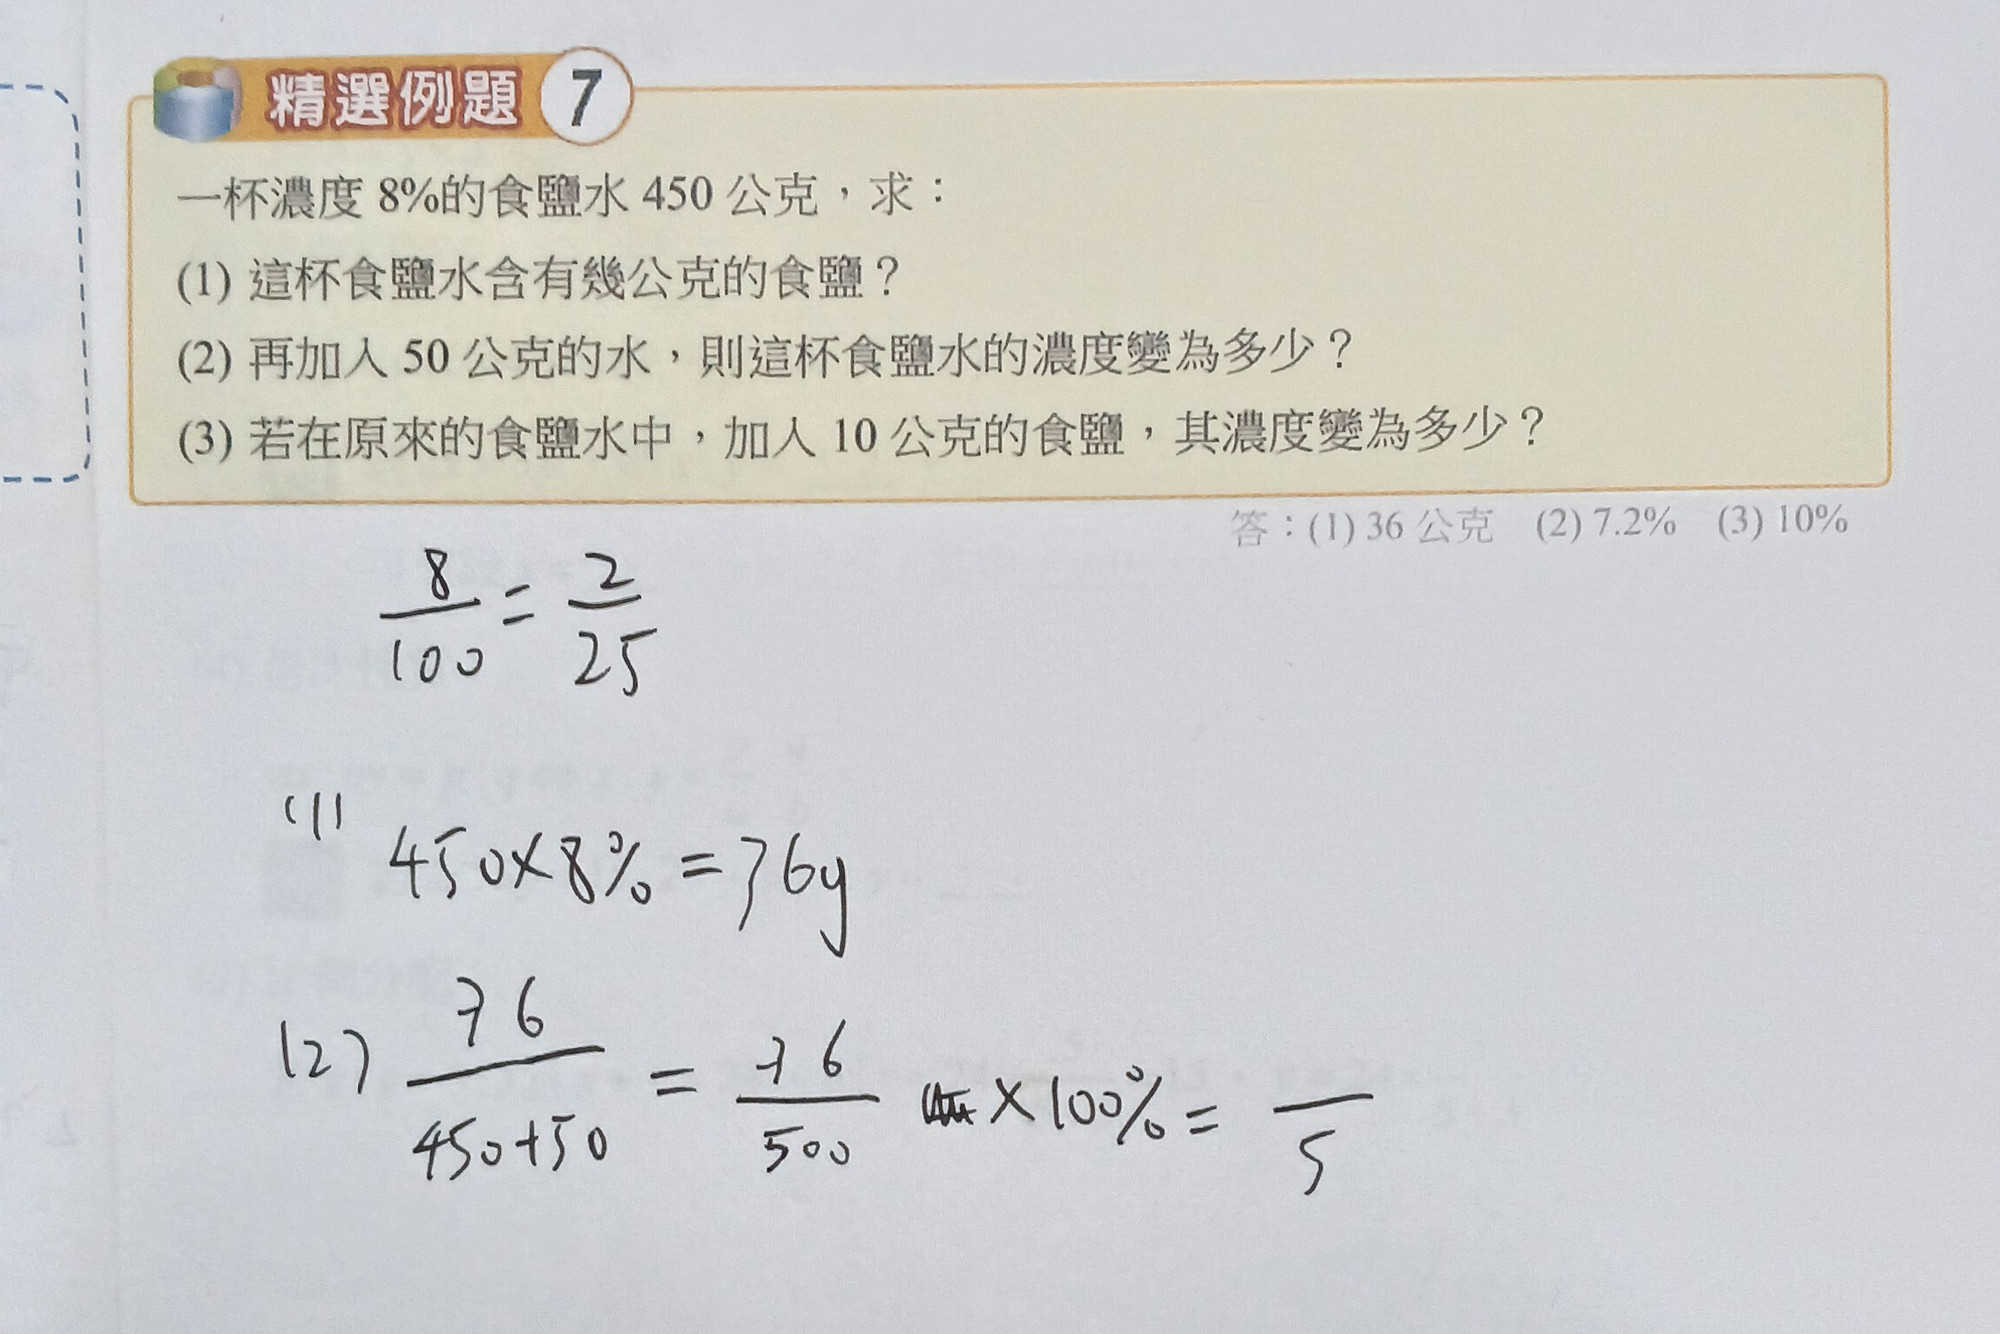 精選例題 7
一杯濃度 8%的食鹽水 450 公克，求：
(1) 這杯食鹽水含有幾公克的食鹽？
(2) 再加入 50 公克的水，則這杯食鹽水的濃度變為多少？
(3) 若在原來的食鹽水中，加入 10 公克的食鹽，其濃度變為多少？
答：(1) 36 公克 (2) 7.2% (3) 10%
8/100 = 2/25
(1) 450×8% = 36g
(2) 36/(450+50) = 36/500 ×100% = /5